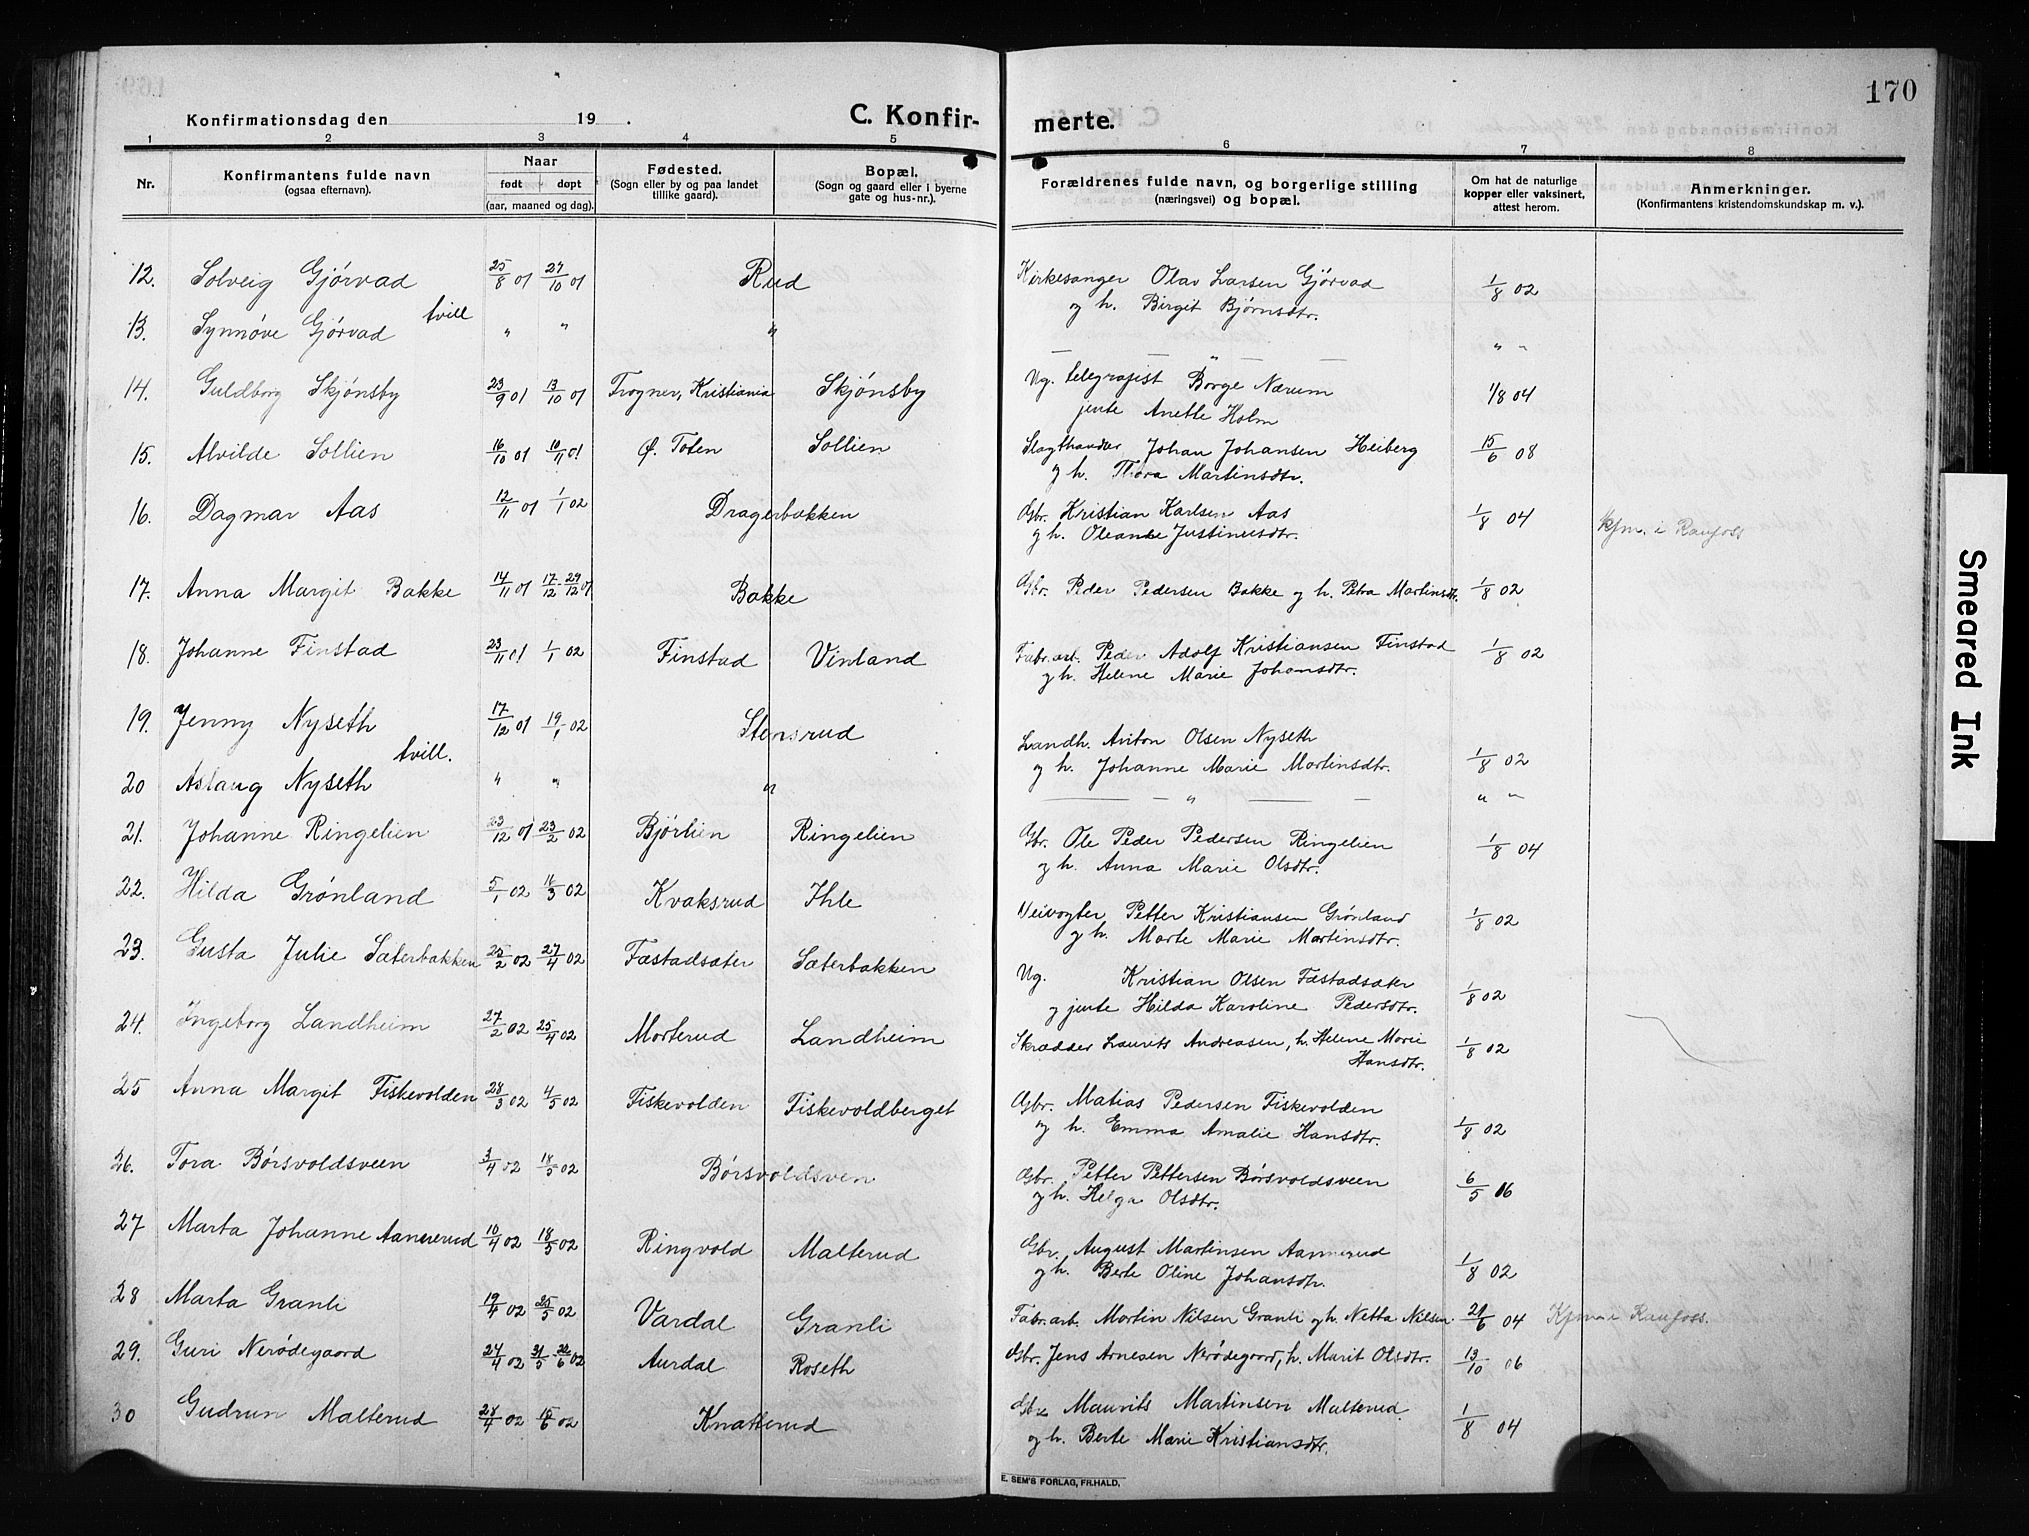 170
Konfirmationsdag den 19 .
C. Konfir-
merte.
1 2 3 4 5 6 7 8
Nr.
Konfirmantens fulde navn
(ogsaa efternavn).
Naar
født døpt
(aar, maaned og dag).
Fødested.
(Sogn eller by og paa landet
tillike gaard).
Bopæl.
(Sogn og gaard eller i byerne
gate og hus-nr.).
Forældrenes fulde navn, og borgerlige stilling
(næringsvei) og bopæl.
Om hat de naturlige
kopper eller vaksinert,
attest herom.
Anmerkninger.
(Konfirmantens kristendomskundskap m. v.).
12. Solveig Gjørvad 25/8 01 27/10 01 Rud Kirkesanger Olav Larsen Gjørvad 1/8 02
og h. Birgit Bjørnsdtr.
tvill
13. Synnøve Gjørvad " " " — — " — — " "
14. Guldborg Skjønsby 23/9 01 13/10 01 Frogner, Kristiania Skjønsby Ug. telegrafist Borge Nærum 1/8 04
jente Anette Holm
15. Alvilde Sollien 16/10 01 10/11 01 Ø. Toten Sollien Slagthandler Johan Johansen Heiberg 15/6 08
og h. Thora Martinsdtr.
16. Dagmar Aas 12/11 01 1/1 02 Dragerbakken Gbr. Kristian Karlsen Aas 1/8 04 Kfm. i Raufoss
og h. Oleanne Justinusdtr.
17. Anna Margit Bakke 14/11 01 17/12 29/12 01 Bakke Gbr. Peder Pedersen Bakke og h. Petra Martinsdtr. 1/8 02
18. Johanne Finstad 23/11 01 1/1 02 Finstad Vinland Fabr.arb. Peder Adolf Kristiansen Finstad 1/8 02
og h. Helene Marie Johansdtr.
19. Jenny Nyseth 17/12 01 19/1 02 Stensrud Landh. Anton Olsen Nyseth 1/8 02
tvill. og h. Johanne Marie Martinsdtr.
20 Aslaug Nyseth " " " — — " — — " "
21. Johanne Ringelien 23/12 01 23/2 02 Bjørlien Ringelien Gbr. Ole Peder Pedersen Ringelien 1/8 04
og h. Anna Marie Olsdtr.
22. Hilda Grønland 5/1 02 16/3 02 Kvaksrud Ihle Veivogter Petter Kristiansen Grønland 1/8 02
og h. Marte Marie Martinsdtr.
23. Gusta Julie Sæterbakken 25/2 02 27/4 02 Fæstadsæter Sæterbakken Ug. Kristian Olsen Fæstadsæter 1/8 02
og jente Hilda Karoline Pedersdtr.
24. Ingeborg Landheim 27/2 02 25/4 02 Morterud Landheim Skrædder Laurits Andreasen, h. Helene Marie 1/8 02
Hansdtr.
25 Anna Margit Fiskevolden 28/3 02 4/5 02 Fiskevolden Fiskevoldberget Gbr. Matias Pedersen Fiskevolden 1/8 02
og h. Emma Amalie Hansdtr.
26. Tora Børsvoldsveen 3/4 02 18/5 02 Børsvoldsven Gbr. Petter Pettersen Børsvoldsveen 6/5 16
og h. Helga Olsdtr.
27 Marta Johanne Aannerud 10/4 02 18/5 02 Ringvold Malterud Gbr. August Martinsen Aannerud 1/8 02
og h. Berte Oline Johansdtr.
28 Marta Granli 19/4 02 25/5 02 Vardal Granli Fabr.arb. Martin Nilsen Granli og h. Netta Nilsen 21/6 04 Kfm. i Raufoss.
29. Guri Nerødegaard 24/4 02 31/5 22/6 02 Aurdal Roseth Gbr. Jens Arnesen Nerødegaard, h. Marit Olsdtr. 13/10 06
30 Gudrun Malterud 28/4 02 15/6 02 Knatterud Gbr. Maurits Martinsen Malterud 1/8 04
og h. Berte Marie Kristiansdtr.
E. SEM'S FORLAG, FR.HALD.
Smeared Ink